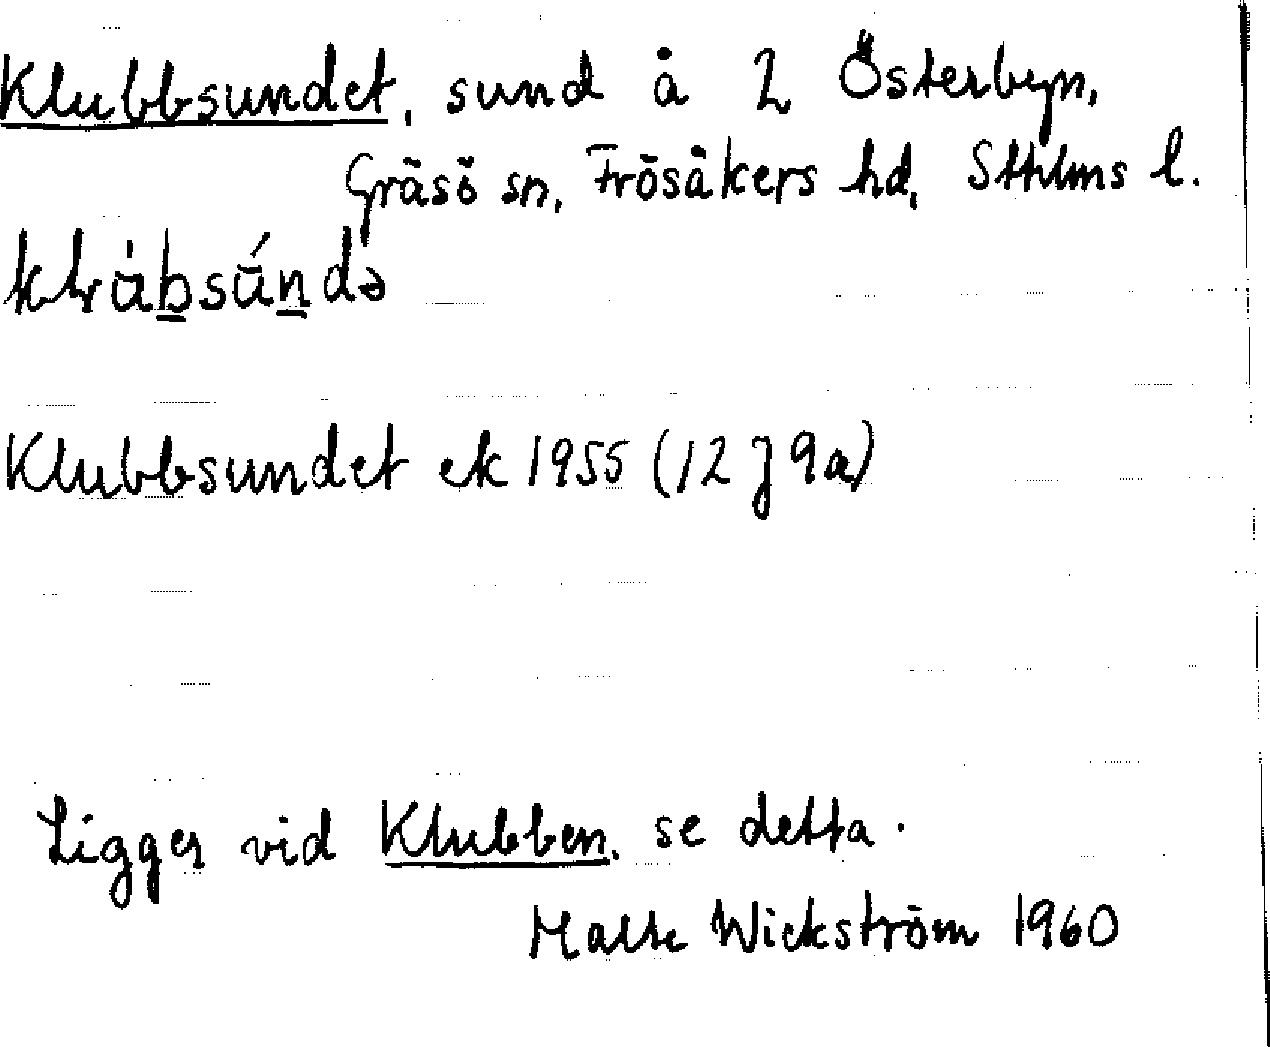 Klubbsundet, sund å 2 Österbyn,
Gräsö sn, Frösåkers hd, Sthlms l.
Klubbsundet ek 1955 (12 J 9a)
Ligger vid Klubben, se detta.
Malte Wickström 1960